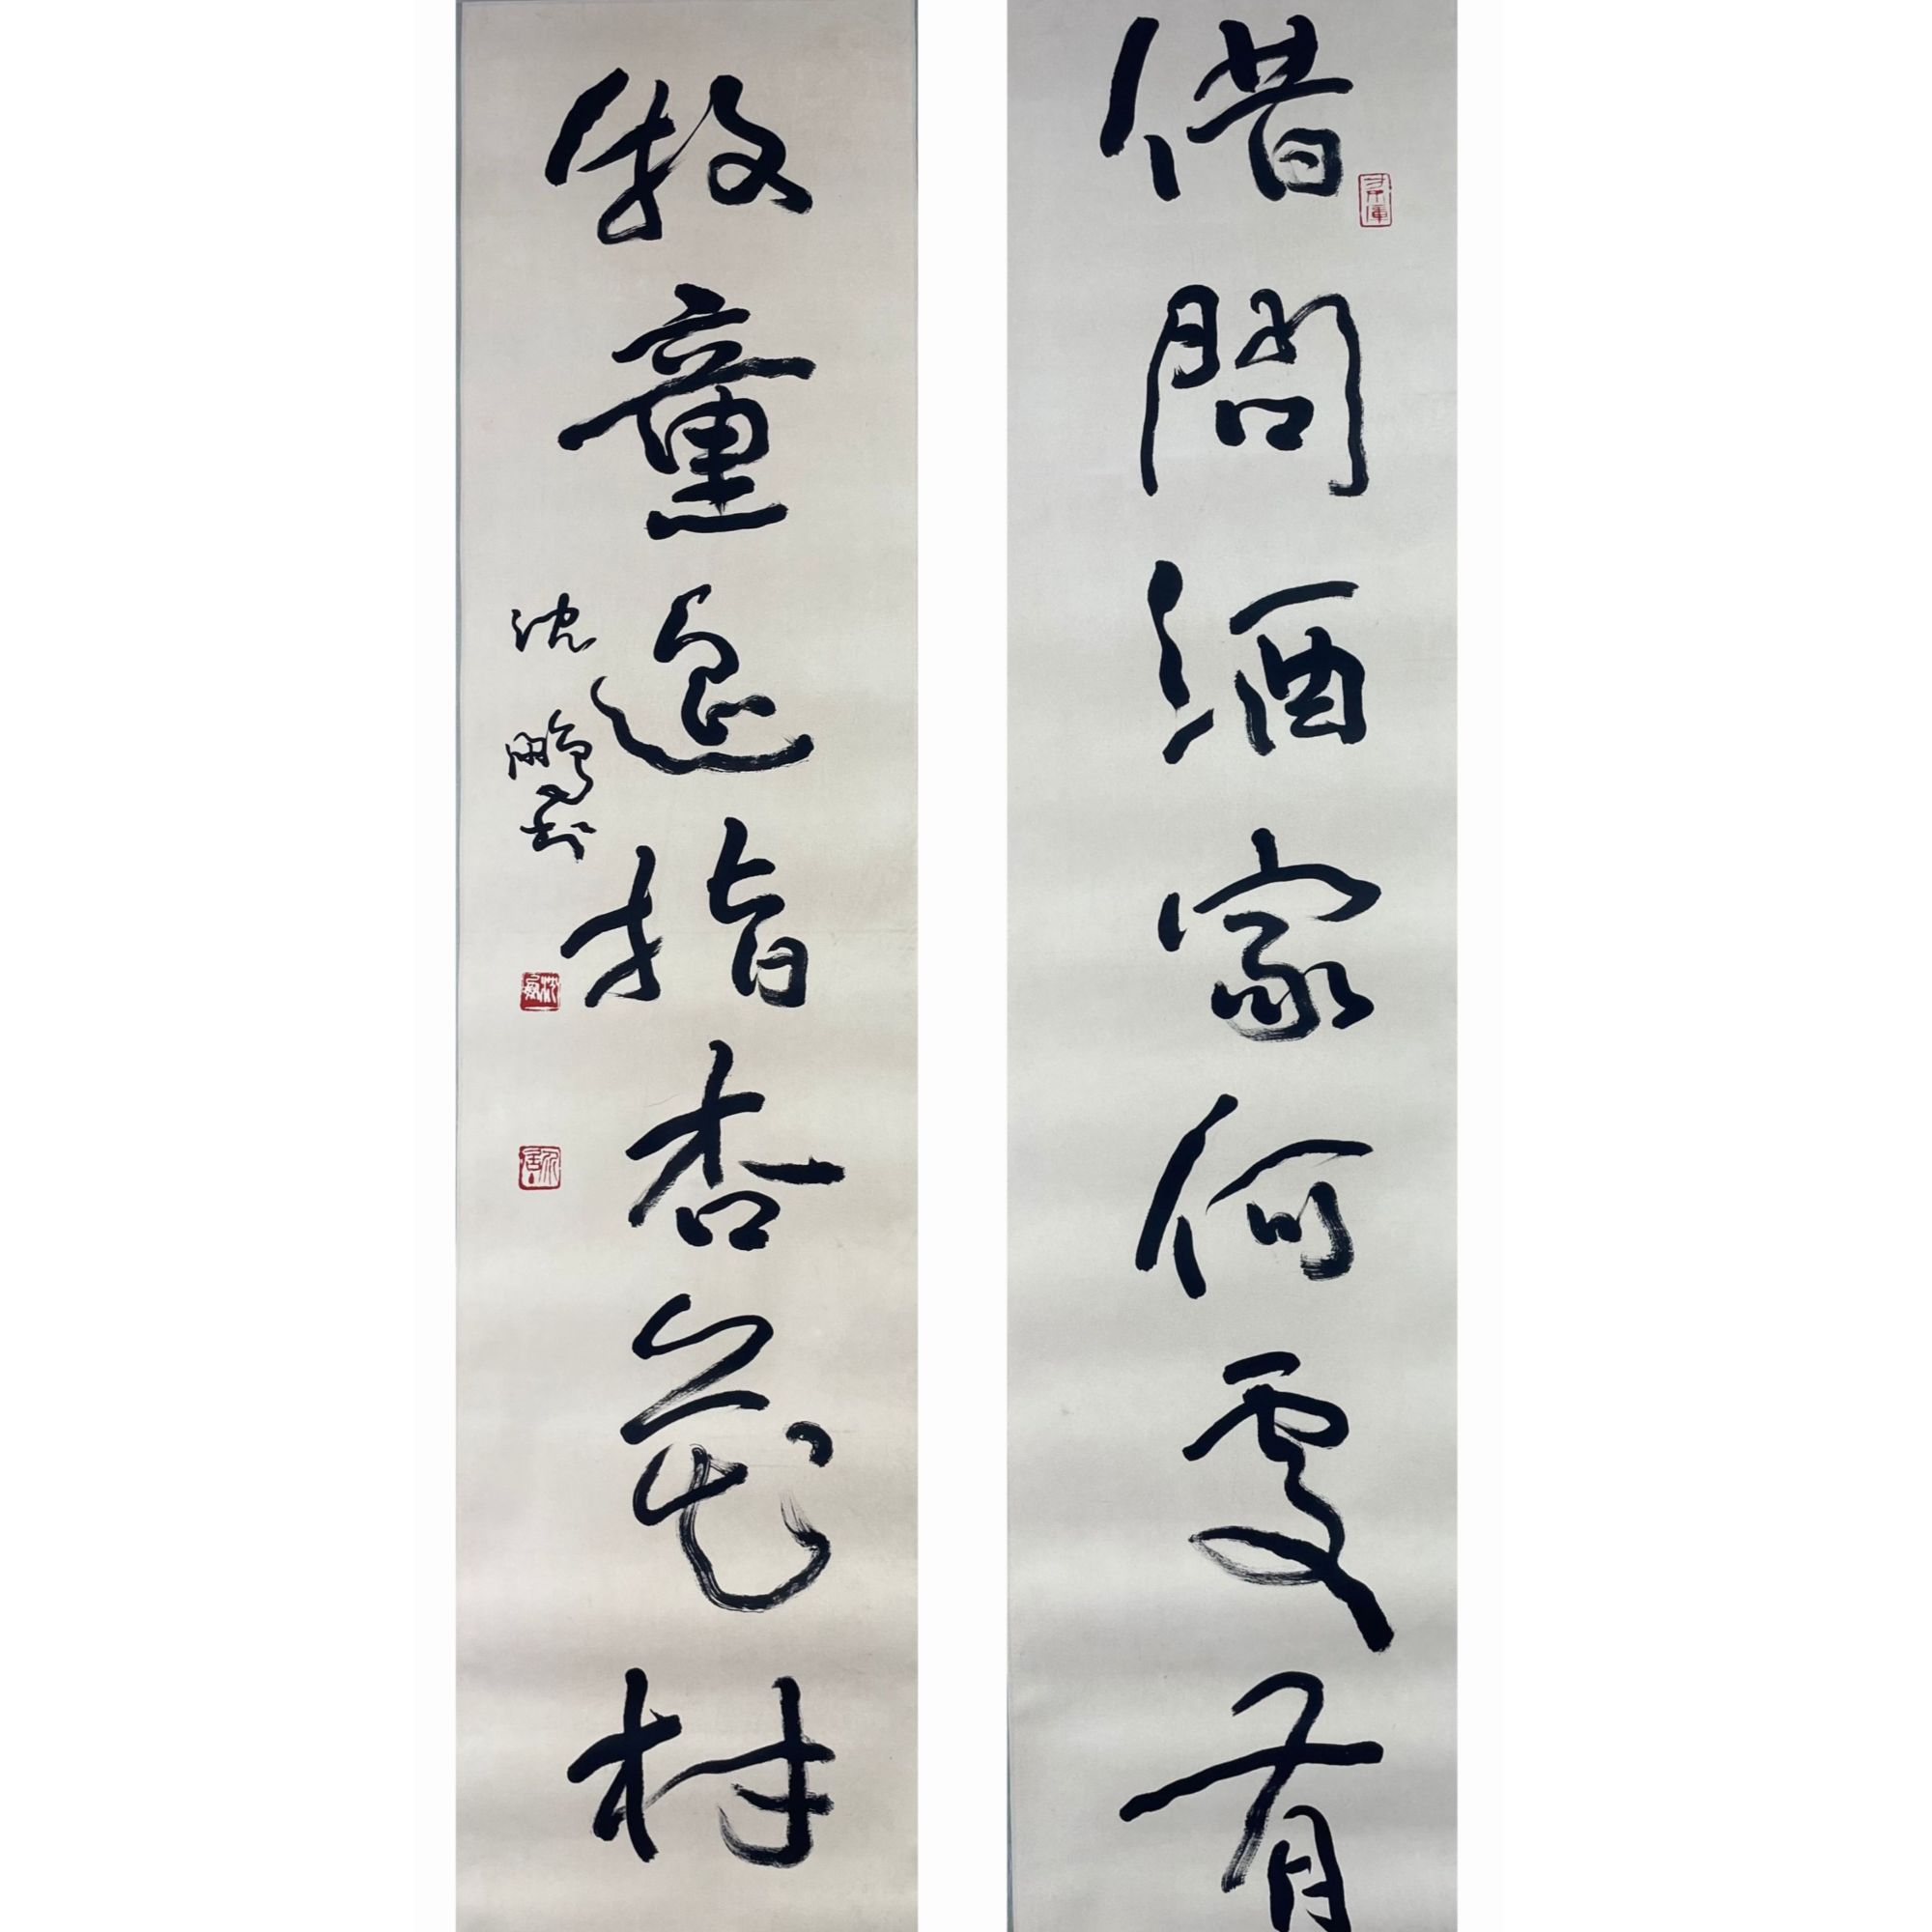 借問酒家何處有
牧童遙指杏花村
沈鵬書
沈鵬